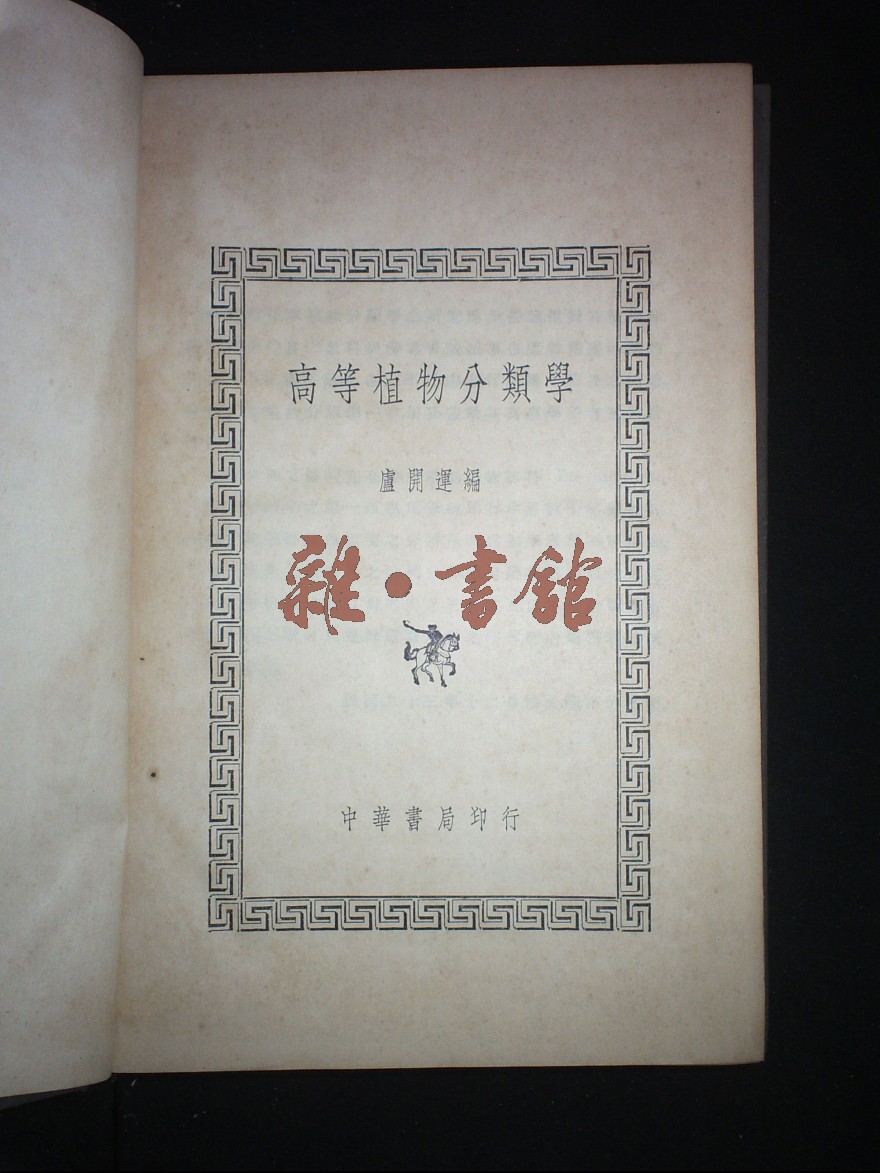 高等植物分類學
盧開運編
雜·書館
中華書局印行